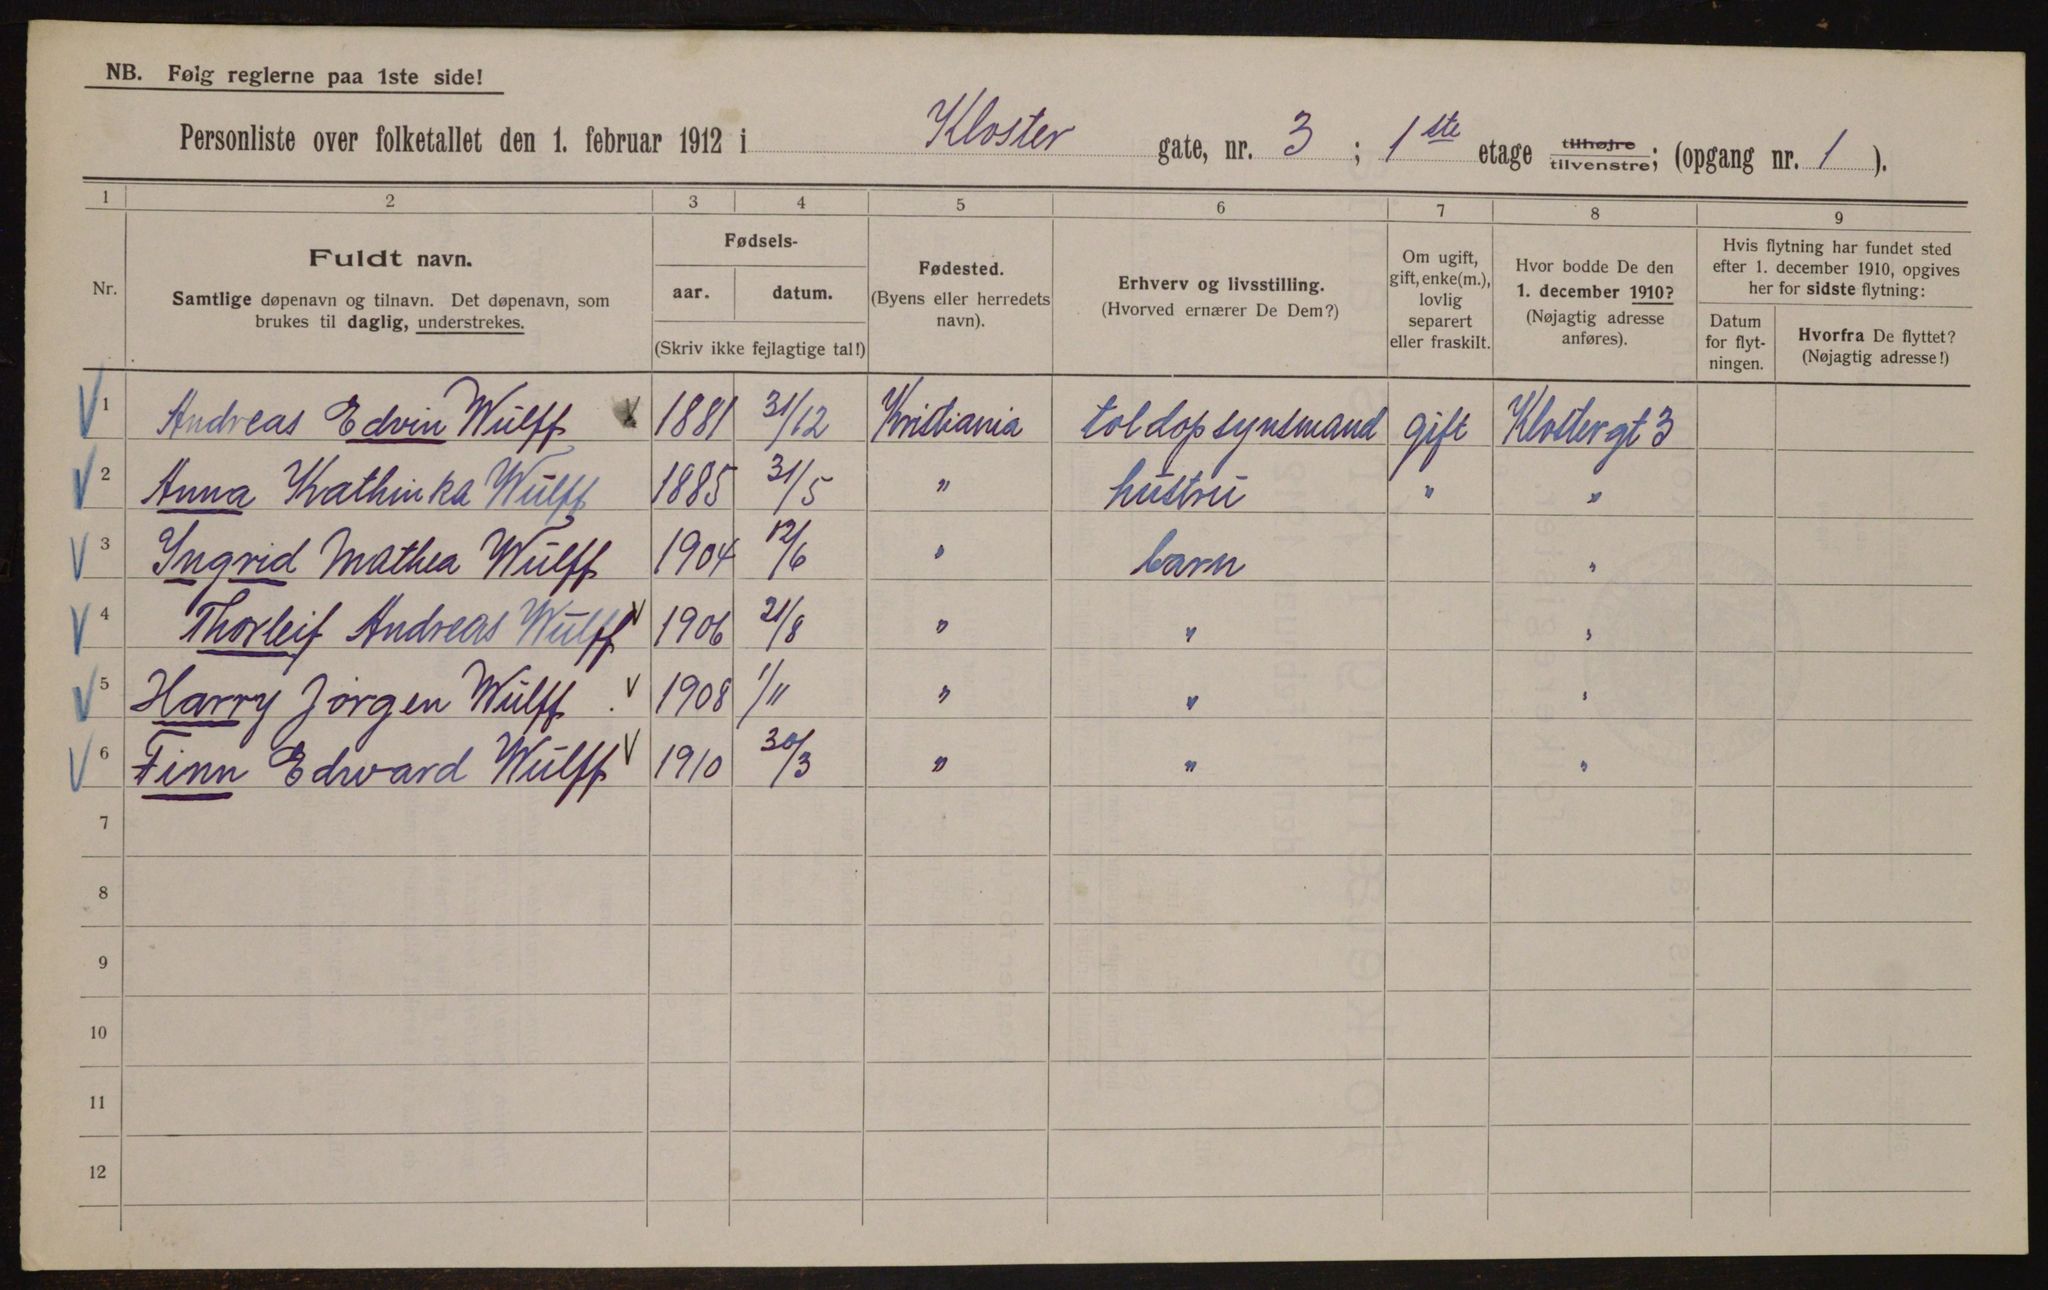 NB. Følg reglerne paa 1ste side!
Personliste over folketallet den 1. februar 1912 i Kloster gate, nr. 3 ; 1ste etage tilhøjre tilvenstre; (opgang nr. 1 ).
1 2 3 4 5 6 7 8 9
Nr.
Fuldt navn.
Samtlige døpenavn og tilnavn. Det døpenavn, som
brukes til daglig, understrekes.
Fødsels-
aar. datum.
(Skriv ikke fejlagtige tal!)
Fødested.
(Byens eller herredets
navn).
Erhverv og livsstilling.
(Hvorved ernærer De Dem?)
Om ugift,
gift, enke(m.),
lovlig
separert
eller fraskilt.
Hvor bodde De den
1. december 1910?
(Nøjagtig adresse
anføres).
Hvis flytning har fundet sted
efter 1. december 1910, opgives
her for sidste flytning:
Datum
for flyt-
ningen.
Hvorfra De flyttet?
(Nøjagtig adresse!)
1 Andreas Edvin Wulff 1881 31/12 Kristiania toldopsynsmand gift Klostergt 3
2 Anna Kathinka Wulff 1885 31/5 " hustru " "
3 Yngrid Mathea Wulff 1904 12/6 " barn "
4 Thorleif Andreas Wulff 1906 21/8 " " "
5 Harry Jörgen Wulff 1908 1/11 " " "
6 Finn Edward Wulff 1910 30/3 " " "
7
8
9
10
11
12